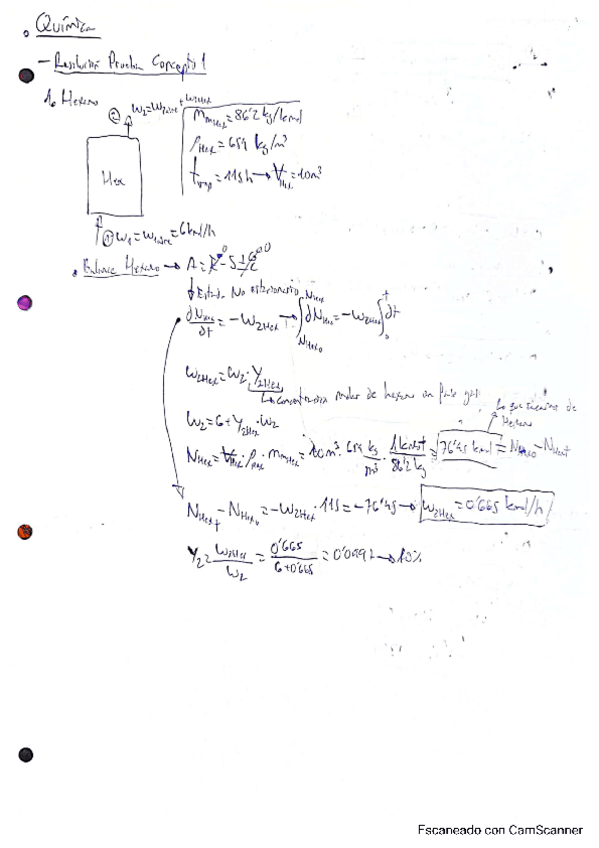 Química
- Resolución Prueba Concepto 1
1. Hexano
② W₂=W₂aire+W₂Hex
MmHex=86'2 kg/kmol
ρHex=659 kg/m³
tevap=115h→VHex=10m³
Hex
① W₁=W₁aire=6kmol/h
Balance Hexano → A=E-S±G
↓ Estado No estacionario
dNHex/dt=-W₂Hex→∫dNHex=-W₂Hex∫dt
NHex
NHex₀
t
0
W₂Hex=W₂·Y₂Hex
concentración molar de hexano en fase gas
Lo que tenemos de Hexano
W₂=6+Y₂Hex·W₂
NHex=VHex·ρHex·MmHex=10m³·659 kg/m³·1kmol/86'2kg=76'45 kmol=NHex₀-NHext
NHext-NHex₀=-W₂Hex·115=-76'45→W₂Hex=0'665 kmol/h
Y₂=W₂Hex/W₂=0'665/6+0'665=0'0997→10%
Escaneado con CamScanner